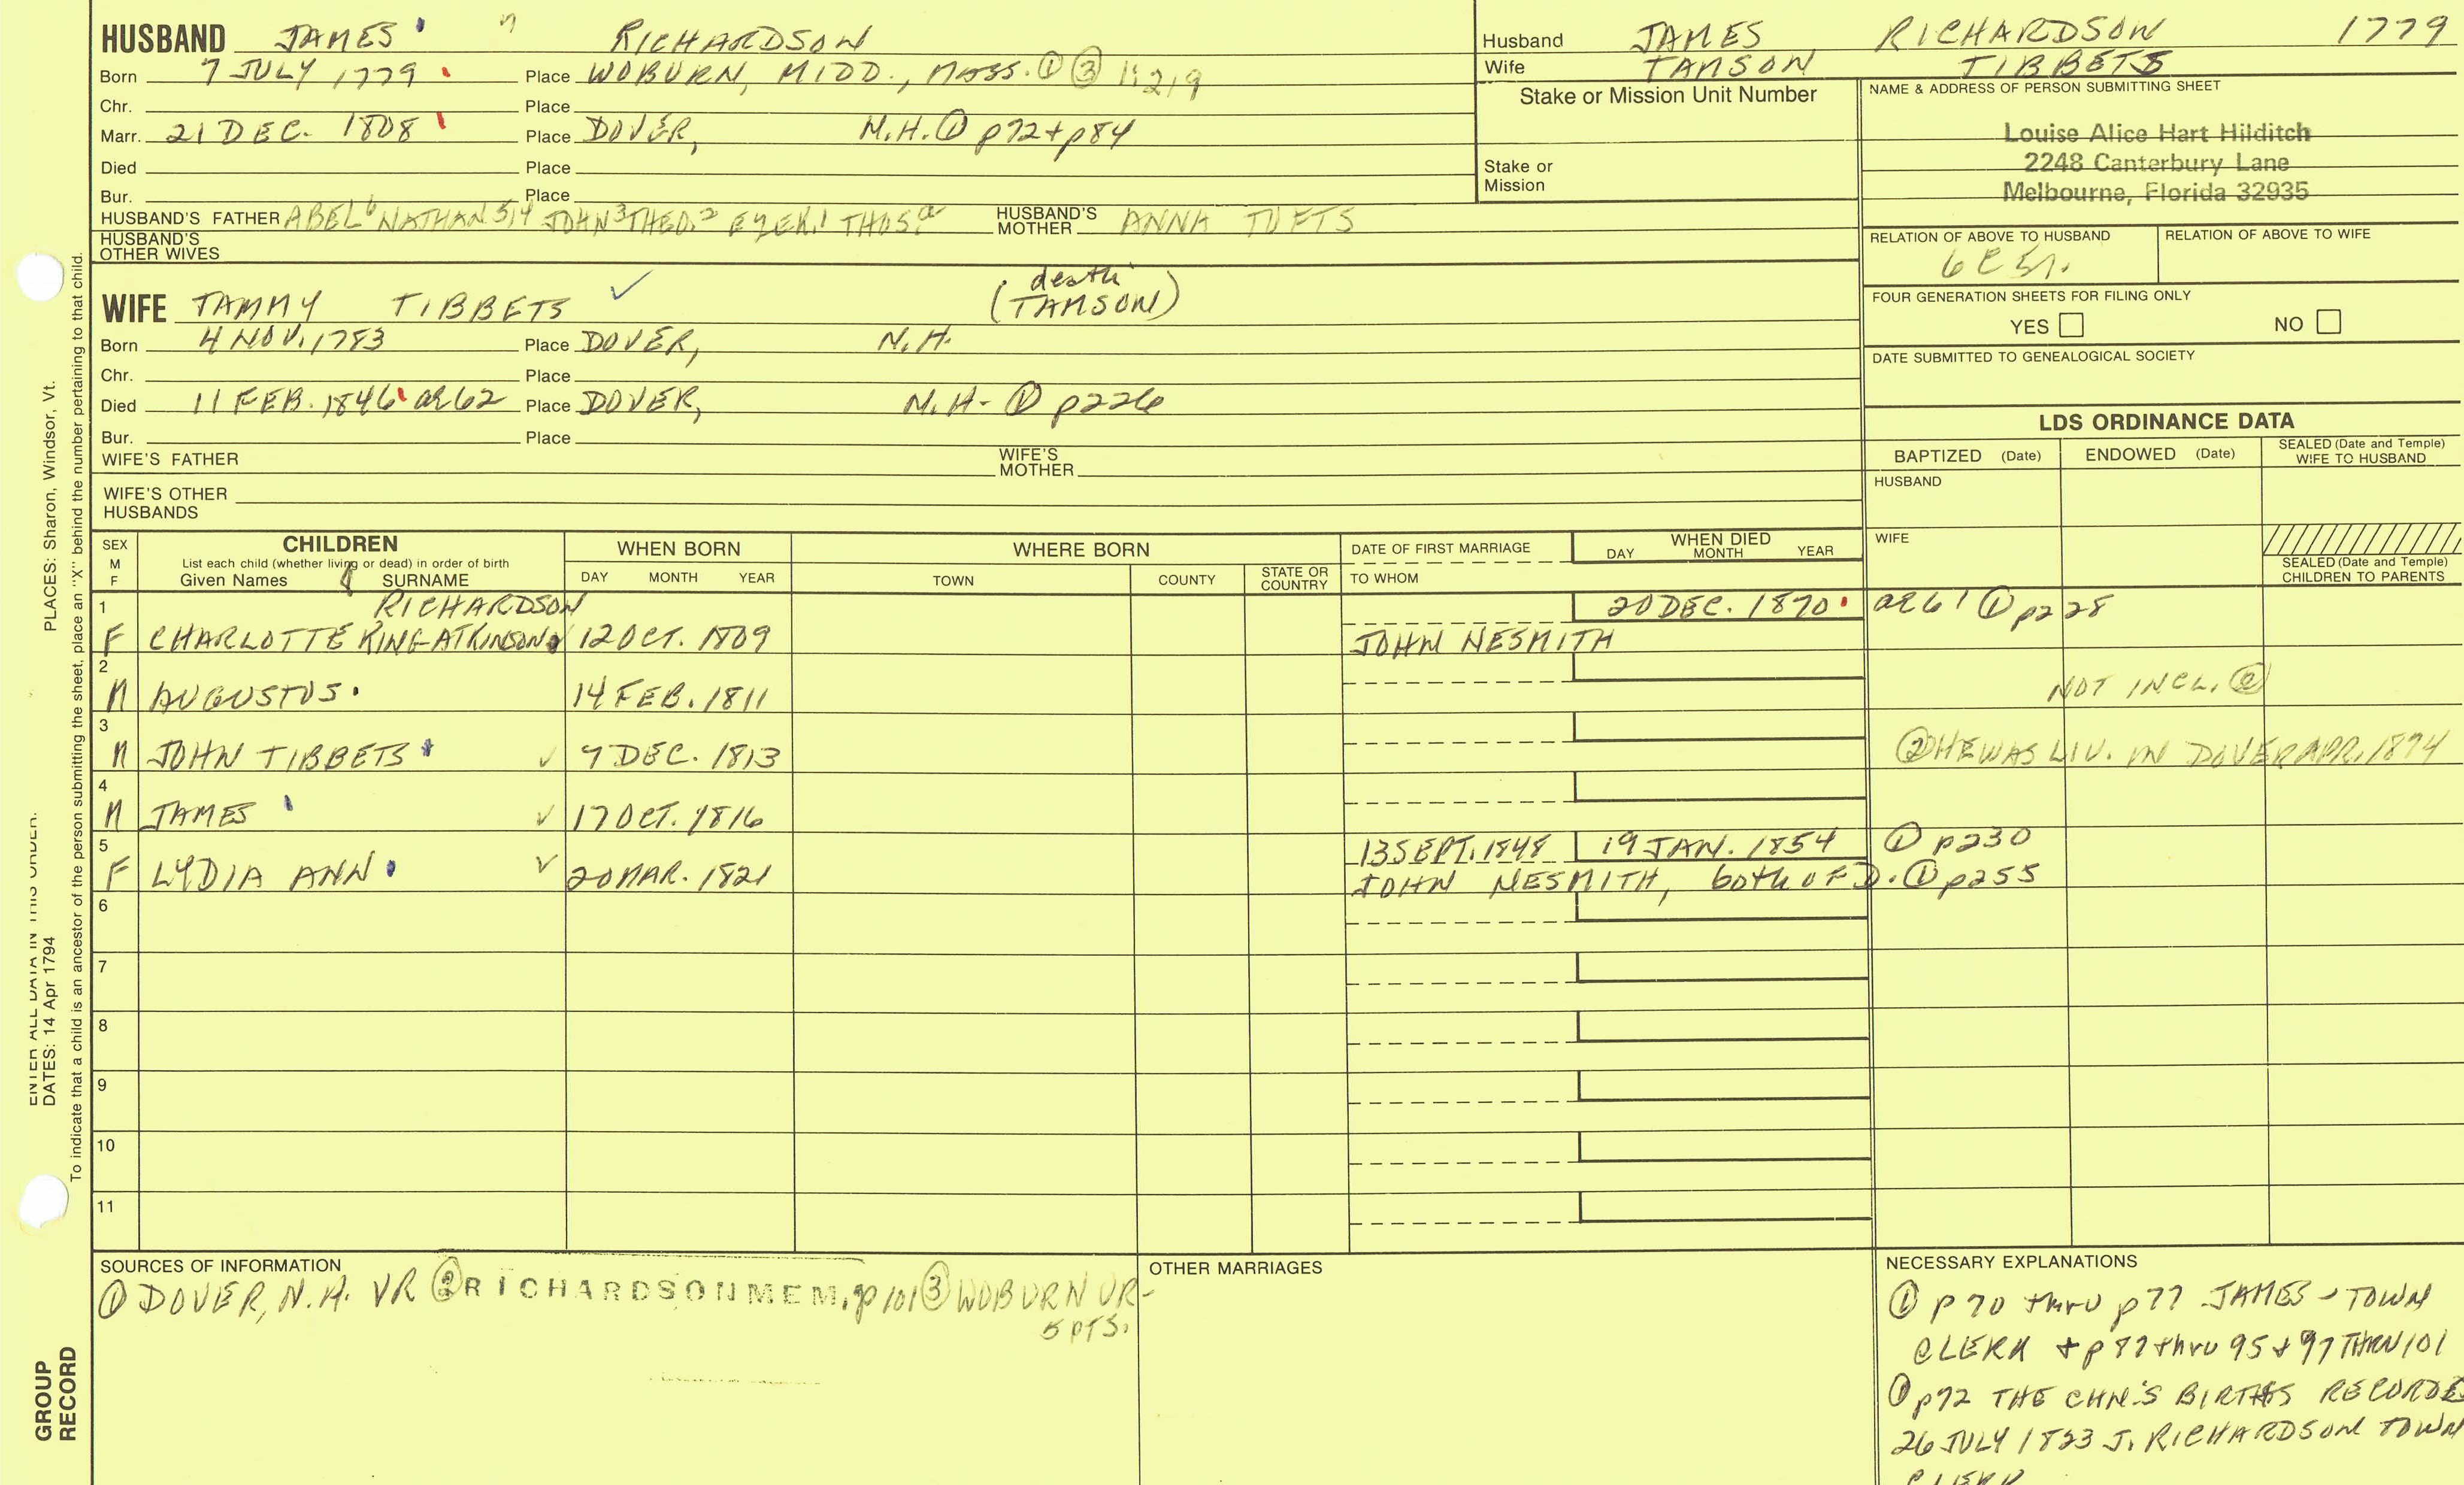 HUSBAND JAMES RICHARDSON
Born 7 JULY 1779 Place WOBURN, MIDD., MASS. ① ③ 1:219
Chr. Place
Marr. 21 DEC. 1808 Place DOVER, N.H. ① p72 + p84
Died Place
Bur. Place
HUSBAND'S FATHER ABEL6 NATHAN 5,4 JOHN3 THEO.2 EZEK.1 THOS.a HUSBAND'S MOTHER ANNA TUFTS
HUSBAND'S OTHER WIVES
Husband JAMES RICHARDSON 1779
Wife TAMSON TIBBETS
Stake or Mission Unit Number
Stake or Mission
NAME & ADDRESS OF PERSON SUBMITTING SHEET
Louise Alice Hart Hilditch
2248 Canterbury Lane
Melbourne, Florida 32935
RELATION OF ABOVE TO HUSBAND RELATION OF ABOVE TO WIFE
FOUR GENERATION SHEETS FOR FILING ONLY
YES NO
DATE SUBMITTED TO GENEALOGICAL SOCIETY
death
WIFE TAMMY TIBBETS ✓ (TAMSON)
Born 4 NOV. 1783 Place DOVER, N.H.
Chr. Place
Died 11 FEB. 1846 ae 62 Place DOVER, N.H- ① p226
Bur. Place
WIFE'S FATHER WIFE'S MOTHER
WIFE'S OTHER HUSBANDS
LDS ORDINANCE DATA
BAPTIZED (Date) ENDOWED (Date) SEALED (Date and Temple) WIFE TO HUSBAND
HUSBAND
WIFE
SEALED (Date and Temple) CHILDREN TO PARENTS
SEX M F
CHILDREN
List each child (whether living or dead) in order of birth
Given Names SURNAME
WHEN BORN
DAY MONTH YEAR
WHERE BORN
TOWN COUNTY STATE OR COUNTRY
DATE OF FIRST MARRIAGE
TO WHOM
WHEN DIED
DAY MONTH YEAR
1 RICHARDSON 20 DEC. 1870 ae 61 ① p228
F CHARLOTTE KING ATKINSON 12 OCT. 1809 JOHN NESMITH
2
M AUGUSTUS 14 FEB. 1811 NOT INCL. ②
3
M JOHN TIBBETS ✓ 9 DEC. 1813 ② HE WAS LIV. IN DOVER APR. 1874
4
M JAMES ✓ 17 OCT. 1816
5 13 SEPT. 1848 19 JAN. 1854 ① p230
F LYDIA ANN ✓ 20 MAR. 1821 JOHN NESMITH, both OF D. ① p255
6
7
8
9
10
11
SOURCES OF INFORMATION
① DOVER, N.H. VR ② RICHARDSON MEM. p101 ③ WOBURN VR-
5 PTS.
OTHER MARRIAGES
NECESSARY EXPLANATIONS
① p 70 thru p77 JAMES - TOWN
CLERK + p87 thru 95 + 97 THRU 101
① p72 THE CHN'S BIRTHS RECORDE
26 JULY 1823 J. RICHARDSON TOWN
CLERK
ENTER ALL DATA IN THIS ORDER:
DATES: 14 Apr 1794 PLACES: Sharon, Windsor, Vt.
To indicate that a child is an ancestor of the person submitting the sheet, place an "X" behind the number pertaining to that child.
GROUP
RECORD